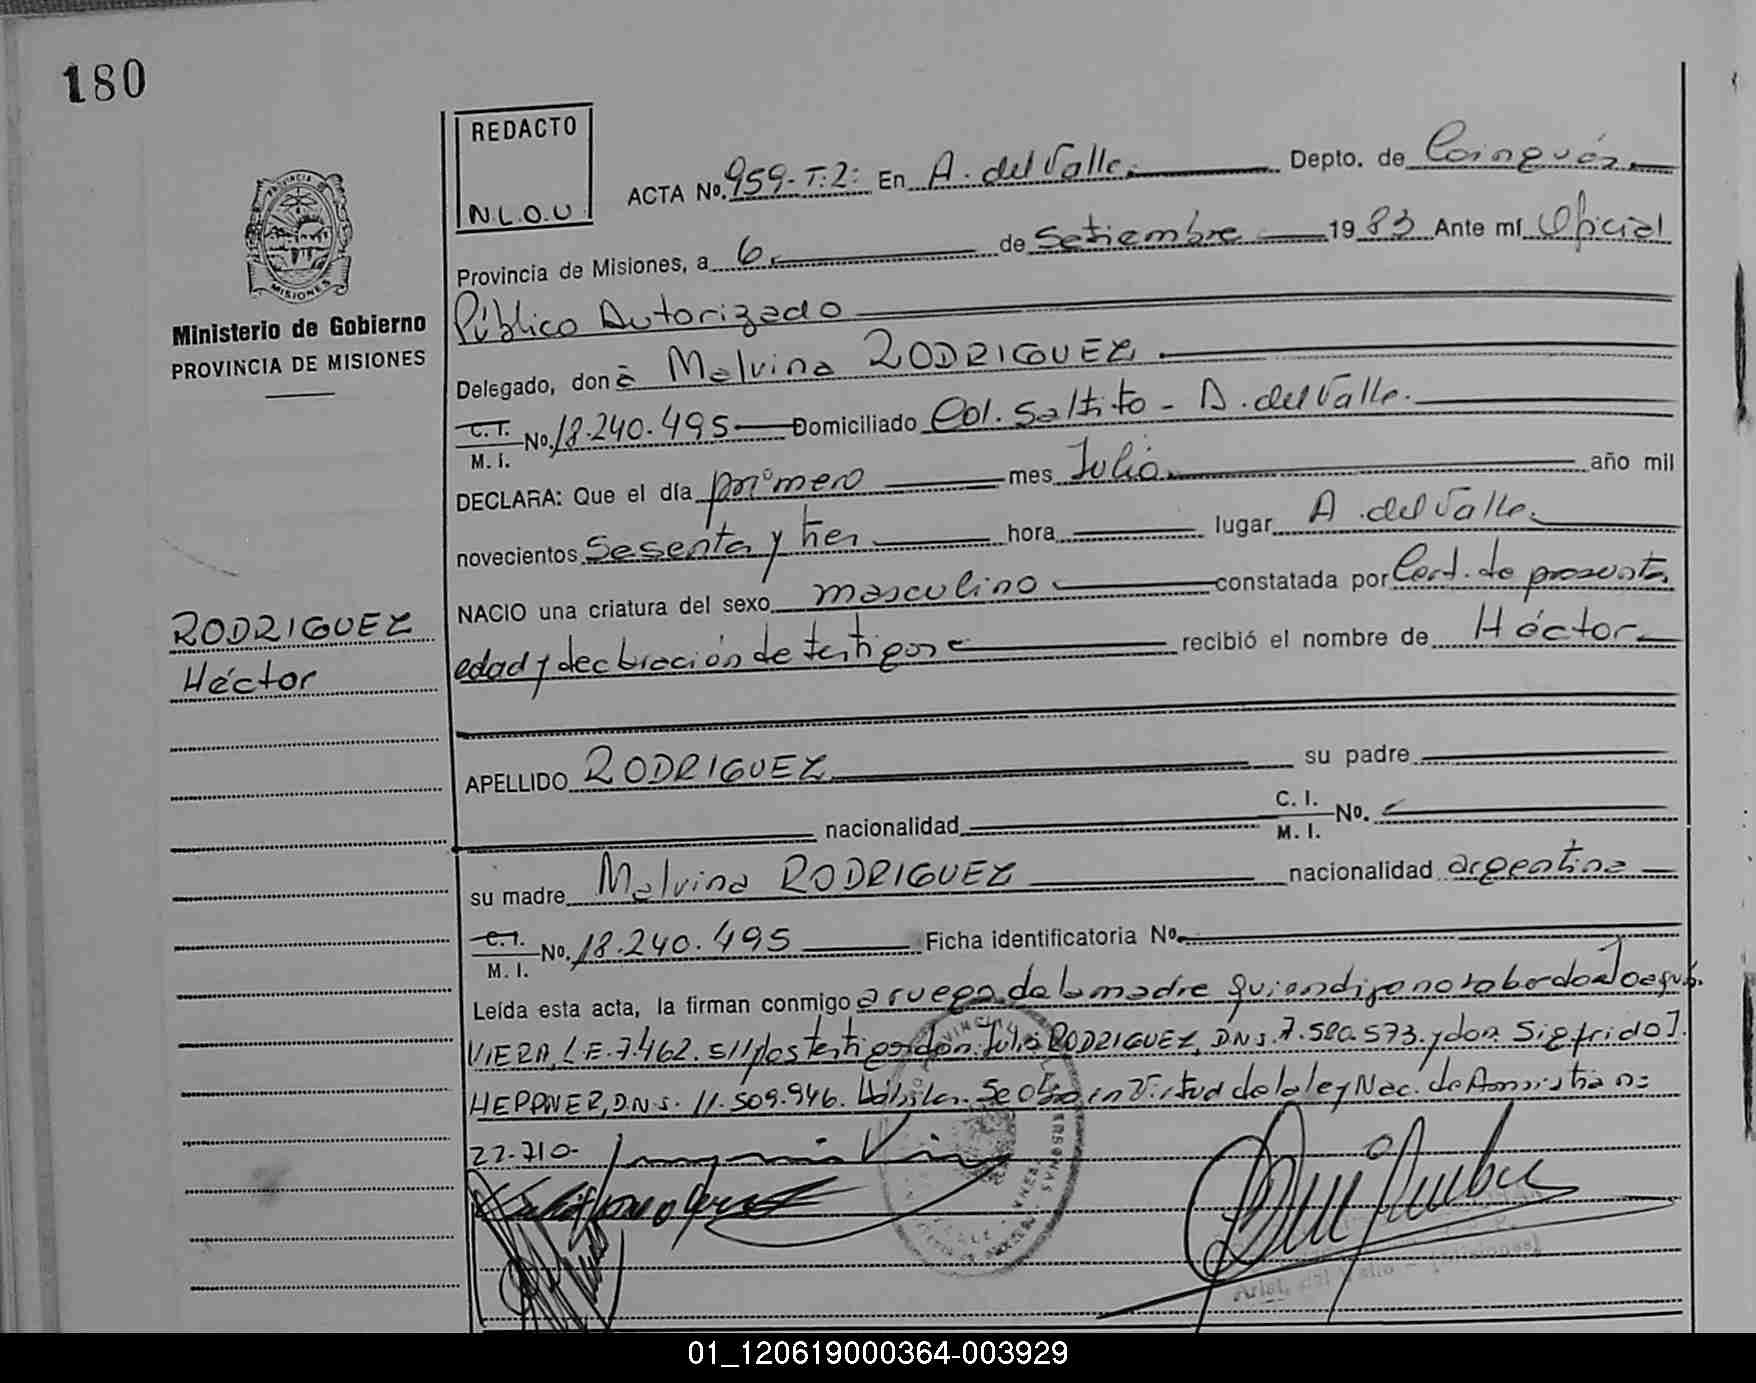 180
REDACTO
N.L.O.U.
ACTA No. 959-T:2: En A. del Valle. Depto. de Cainguás.
Provincia de Misiones, a 6. de Setiembre 1983 Ante mí Oficial
Público Autorizado
Ministerio de Gobierno
PROVINCIA DE MISIONES
Delegado, don a Malvina RODRIGUEZ.
C.I. M. I. No. 18.240.495 Domiciliado Col. Saltito - A. del Valle.
DECLARA: Que el día primero mes Julio año mil
novecientos sesenta y tres hora lugar A. del Valle.
NACIO una criatura del sexo masculino constatada por Cert. de presunta
edad y declaración de testigos recibió el nombre de Héctor
RODRIGUEZ
Héctor
APELLIDO RODRIGUEZ su padre
nacionalidad C. I. M. I. No.
su madre Malvina RODRIGUEZ nacionalidad argentina
C.I. M. I. No. 18.240.495 Ficha identificatoria No.
Leída esta acta, la firman conmigo a ruego de la madre quien dijo no saber don
VIERA, L.E. 7.462.511 los testigos don Julio RODRIGUEZ, D.N.I. 7.580.573. y don Sigfrido I.
HEPPNER, D.N.I. 11.509.946. Hábiles. Se en virtud de la ley Nac. de Amnistia n:
22.710-
MISIONES
01_120619000364-003929